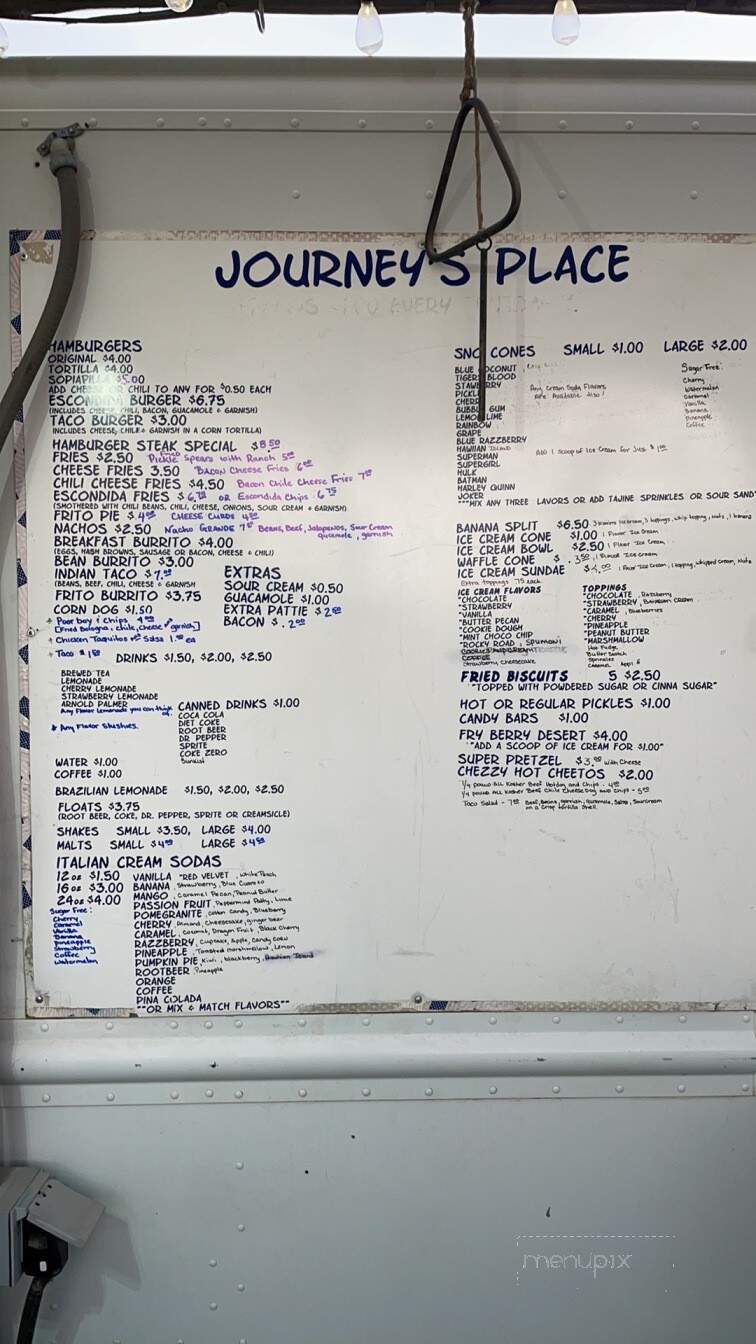 JOURNEY'S PLACE
HAMBURGERS
ORIGINAL $4.00
TORTILLA $4.00
SOPIAPILLA $5.00
ADD CHEESE OR CHILI TO ANY FOR $0.50 EACH
ESCONDIDA BURGER $6.75
(INCLUDES CHEESE, CHILI, BACON, GUACAMOLE & GARNISH)
TACO BURGER $3.00
INCLUDES CHEESE, CHILE & GARNISH IN A CORN TORTILLA)
HAMBURGER STEAK SPECIAL $8.50
FRIES $2.50 Fried Pickle Spears with Ranch 5.00
CHEESE FRIES 3.50 Bacon Cheese Fries 6.00
CHILI CHEESE FRIES $4.50 Bacon Chile Cheese Fries 7.00
ESCONDIDA FRIES $6.75 OR Escondida Chips 6.75
(SMOTHERED WITH CHILI BEANS, CHILI, CHEESE, ONIONS, SOUR CREAM & GARNISH)
FRITO PIE $4.00 CHEESE CURDS 4.00
NACHOS $2.50 Nacho GRANDE 7.00 Beans, Beef, Jalapenos, Sour Cream
guacamole, garnish
BREAKFAST BURRITO $4.00
(EGGS, HASH BROWNS, SAUSAGE OR BACON, CHEESE & CHILI)
BEAN BURRITO $3.00
INDIAN TACO $7.00
(BEANS, BEEF, CHILI, CHEESE & GARNISH
FRITO BURRITO $3.75
CORN DOG $1.50
* Poor boy & chips
[Fried Bologna, chile, cheese & garnish]
* Chicken Taquitos w/ Salsa 1.00 ea
* Taco
EXTRAS
SOUR CREAM $0.50
GUACAMOLE $1.00
EXTRA PATTIE $2.00
BACON $.2.00
DRINKS $1.50, $2.00, $2.50
BREWED TEA
LEMONADE
CHERRY LEMONADE
STRAWBERRY LEMONADE
ARNOLD PALMER
Any Flavor Lemonade you can think of.
* Any Flavor Slushies.
CANNED DRINKS $1.00
COCA COLA
DIET COKE
ROOT BEER
DR. PEPPER
SPRITE
COKE ZERO
Sunkist
WATER $1.00
COFFEE $1.00
BRAZILIAN LEMONADE $1.50, $2.00, $2.50
FLOATS $3.75
(ROOT BEER, COKE, DR. PEPPER, SPRITE OR CREAMSICLE)
SHAKES SMALL $3.50, LARGE $4.00
MALTS SMALL $4.00 LARGE $4.50
ITALIAN CREAM SODAS
12 oz $1.50
16 oz $3.00
24 oz $4.00
Sugar Free:
Cherry
Caramel
Vanilla
Banana
Pineapple
Strawberry
Coffee
Watermelon
VANILLA *RED VELVET, White Peach
BANANA, Strawberry, Blue Curacao
MANGO, Caramel Pecan, Peanut Butter
PASSION FRUIT, Peppermint Patty, Lime
POMEGRANITE, Cotton Candy, Blueberry
CHERRY, Almond, Cheesecake, ginger beer
CARAMEL, Coconut, Dragon Fruit, Black Cherry
RAZZBERRY, Cupcake, Apple, Candy Corn
PINEAPPLE, Toasted marshmallow, Lemon
PUMPKIN PIE, Kiwi, blackberry, Hawaiian Island
ROOTBEER Pineapple
ORANGE
COFFEE
PINA COLADA
**OR MIX & MATCH FLAVORS**
SNO CONES SMALL $1.00 LARGE $2.00
BLUE COCONUT
TIGERS BLOOD
STAWBERRY
PICKLE
CHERRY
BUBBLE GUM
LEMON LIME
RAINBOW
GRAPE
BLUE RAZZBERRY
HAWIIAN Island
SUPERMAN
SUPERGIRL
HULK
BATMAN
HARLEY QUINN
JOKER
Any Cream Soda Flavors
Are Available Also!
Add 1 scoop of Ice Cream for Just $1.00
Sugar Free:
Cherry
Watermelon
Caramel
Vanilla
Banana
Pineapple
Coffee
***MIX ANY THREE LAVORS OR ADD TAJINE SPRINKLES OR SOUR SAND
BANANA SPLIT $6.50 3 Flavors Ice Cream, 3 toppings, whip topping, Nuts, 1 banana
ICE CREAM CONE $1.00 1 Flavor Ice Cream
ICE CREAM BOWL $2.50 1 Flavor Ice Cream
WAFFLE CONE $.3.50 1 Flavor Ice Cream
ICE CREAM SUNDAE 1 Flavor Ice Cream, 1 topping, whipped cream, Nuts
Extra toppings .75 each
ICE CREAM FLAVORS
*CHOCOLATE
*STRAWBERRY
*VANILLA
*BUTTER PECAN
*COOKIE DOUGH
*MINT CHOCO CHIP
*ROCKY ROAD, Spumoni
Strawberry Cheesecake
TOPPINGS
*CHOCOLATE, Razberry
*STRAWBERRY, Bavarian Cream
*CARAMEL, Blueberries
*CHERRY
*PINEAPPLE
*PEANUT BUTTER
*MARSHMALLOW
Hot Fudge
Butter Scotch
Sprinkles
Caramel Apple
FRIED BISCUITS 5 $2.50
*TOPPED WITH POWDERED SUGAR OR CINNA SUGAR*
HOT OR REGULAR PICKLES $1.00
CANDY BARS $1.00
FRY BERRY DESERT $4.00
*ADD A SCOOP OF ICE CREAM FOR $1.00*
SUPER PRETZEL $3.00 with Cheese
CHEZZY HOT CHEETOS $2.00
1/4 pound ALL Kosher Beef Hotdog and Chips - 4.00
1/4 pound ALL Kosher Beef Chile Cheese Dog and Chips - 5.00
Taco Salad - 7.00 Beef, Beans, garnish, guacamole, Salsa, Sour Cream
on a Crisp tortilla Shell
menupix